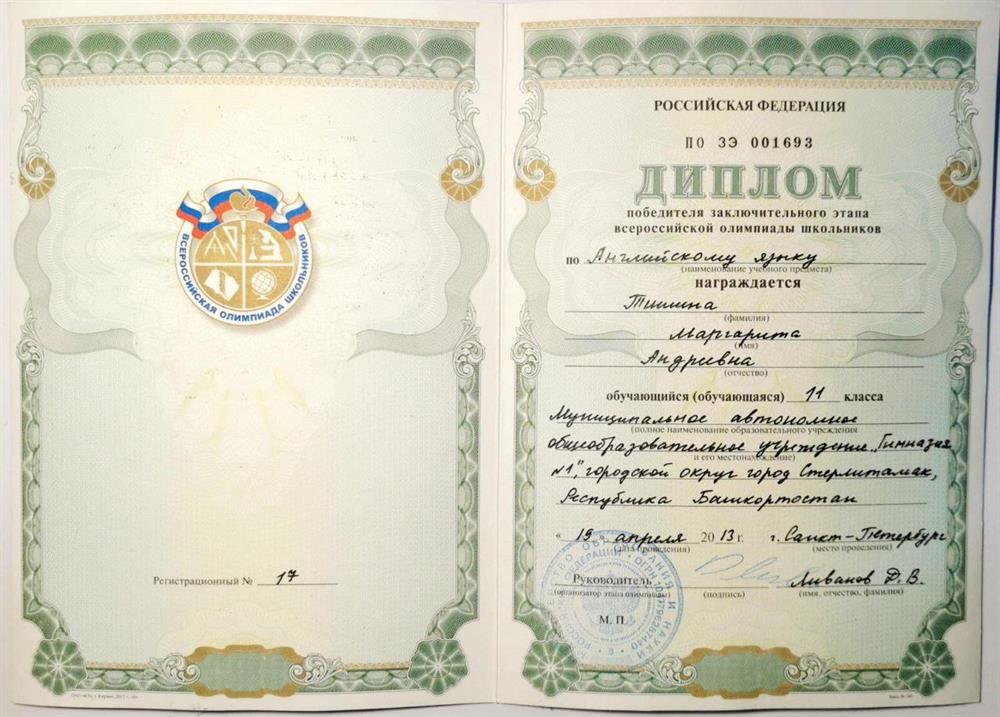 ВСЕРОССИЙСКАЯ ОЛИМПИАДА ШКОЛЬНИКОВ
Регистрационный № 17
РОССИЙСКАЯ ФЕДЕРАЦИЯ
ПО ЗЭ 001693
ДИПЛОМ
победителя заключительного этапа
всероссийской олимпиады школьников
по Английскому языку
(наименование учебного предмета)
награждается
Тишина
(фамилия)
Маргарита
(имя)
Андреевна
(отчество)
обучающийся (обучающаяся) 11 класса
Муниципальное автономное
(полное наименование образовательного учреждения
общеобразовательное учреждение „Гимназия
и его местонахождение)
№1", городской округ город Стерлитамак,
Республика Башкортостан
« 19 » апреля 2013 г. г. Санкт-Петербург
(дата проведения) (место проведения)
Руководитель Ливанов Д.В.
(организатор этапа олимпиады) (подпись) (имя, отчество, фамилия)
М. П.